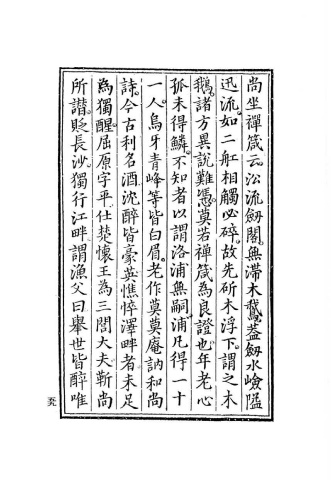 尚坐禪箴云㳂流劒閣無滯木鵞蓋劒水嶮隘
迅流如二舡相觸必碎故先斫木浮下謂之木
鵝諸方異說難憑莫若禪箴為良證也年老心
孤未得鱗不知者以謂洛浦無嗣浦凡得一十
一人烏牙青峰等皆白眉老作莫莫庵訥和尚
詩今古利名酒沈醉皆豪英憔悴澤畔者未足
為獨醒屈原字平仕楚懷王為三閭大夫靳尚
所譖貶長沙獨行江畔謂漁父曰舉世皆醉唯